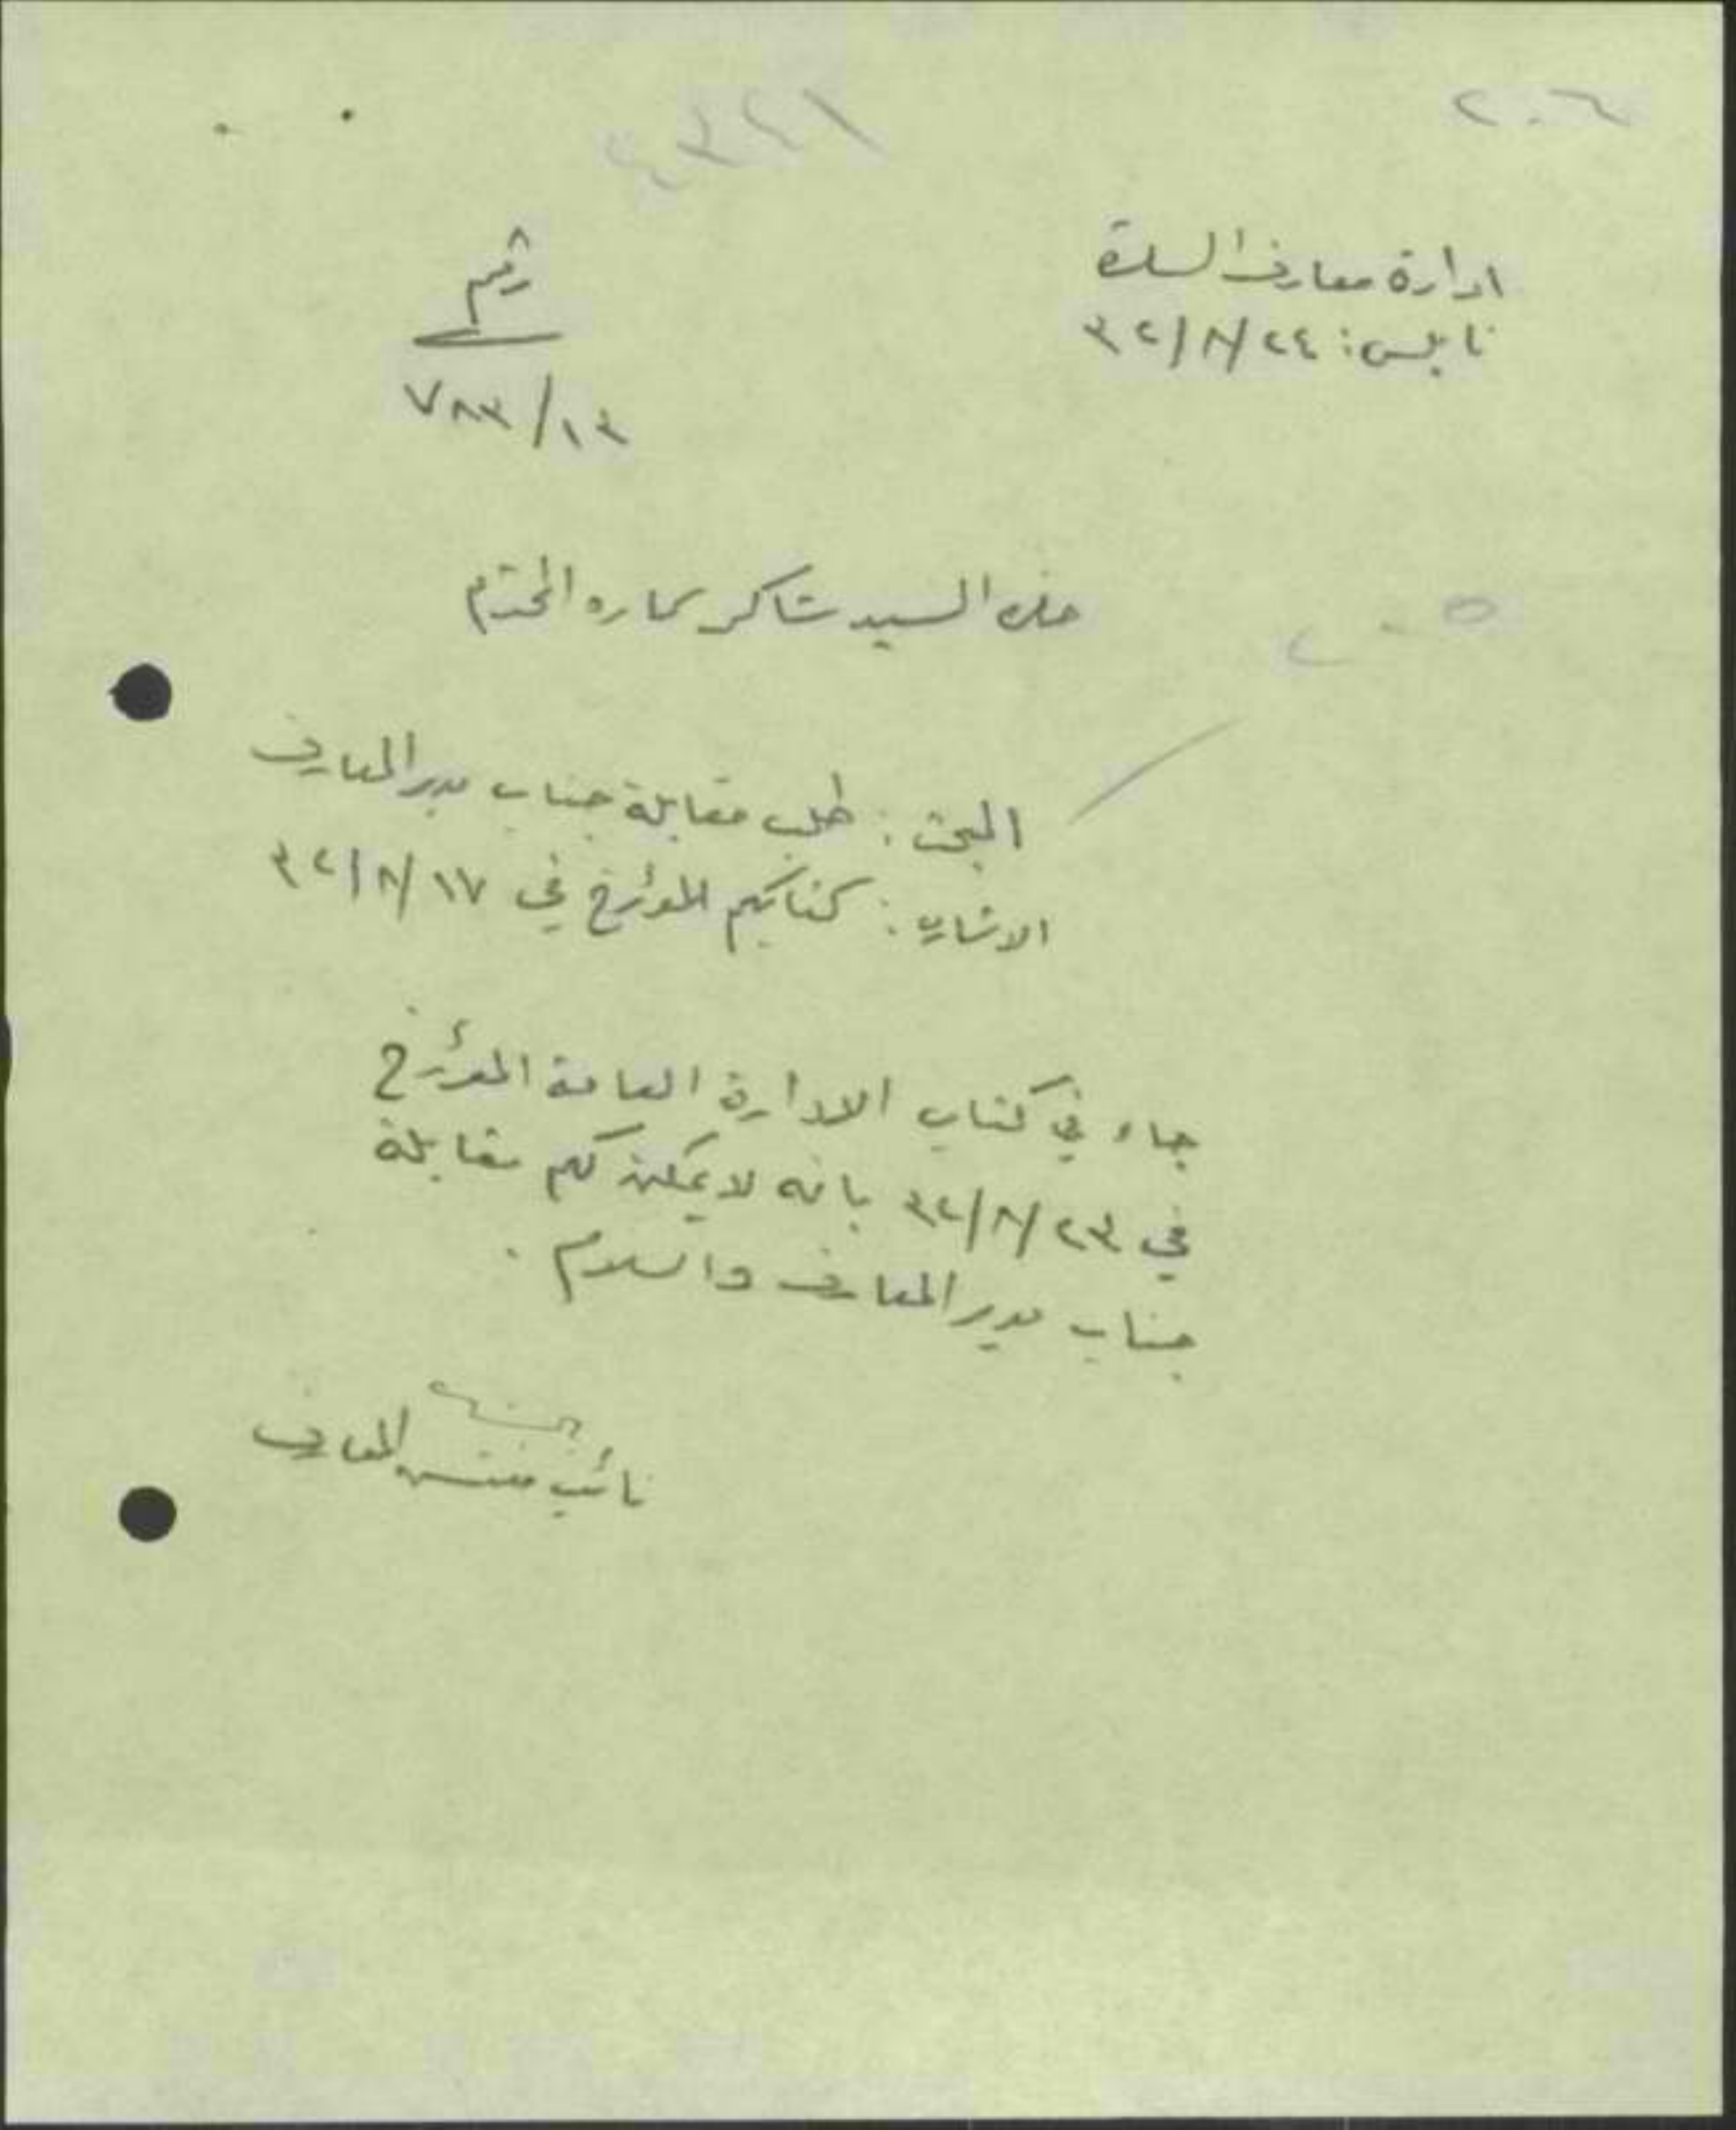 ٢٠٦
ادارة معارف السامرة
نابلس: ٣٢/٨/٢٤
رقم
٧٨٣/١٣
حضرة السيد شاكر سماره المحترم
٢٠٥
المبحث: طلب مقابلة جناب مدير المعارف
الاشارة: كتابكم المؤرخ في ٣٢/٨/١٧
جاء في كتاب الادارة العامة المؤرخ
في ٣٢/٨/٢٣ بانه لا يمكن لكم مقابلة
جناب مدير المعارف والسلام .
نائب مفتش المعارف